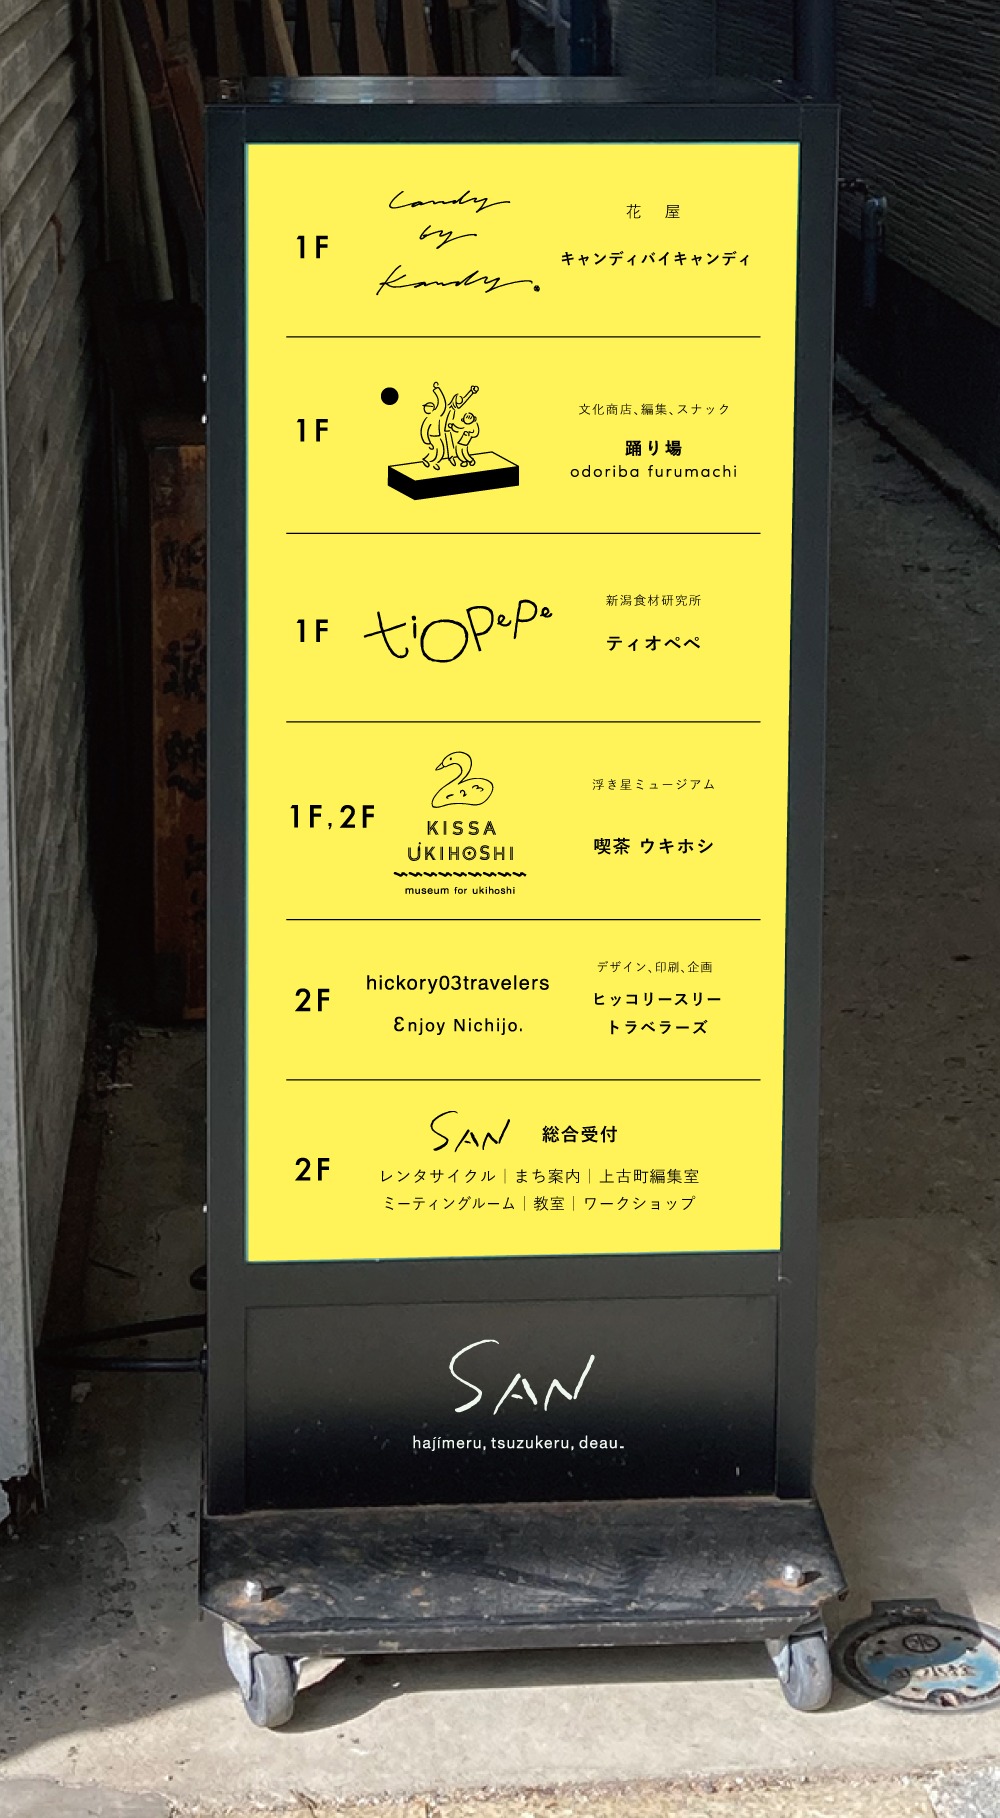 1F
Candy
by
Kandy.
花 屋
キャンディバイキャンディ
1F
文化商店、編集、スナック
踊り場
odoriba furumachi
1F
tiopepe
新潟食材研究所
ティオペペ
1F, 2F
KISSA
UKIHOSHI
museum for ukihoshi
浮き星ミュージアム
喫茶 ウキホシ
2F
hickory03travelers
Enjoy Nichijo.
デザイン、印刷、企画
ヒッコリースリー
トラベラーズ
2F
SAN 総合受付
レンタサイクル｜まち案内｜上古町編集室
ミーティングルーム｜教室｜ワークショップ
SAN
hajimeru, tsuzukeru, deau.